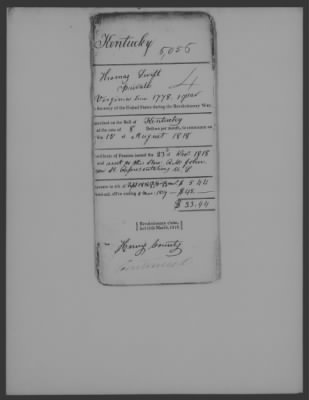 Kentucky
5,056
Thomas Swift
Private
4
Virginia line 1778 1 year
in the army of the United States during the Revolutionary War.
Inscribed on the Roll of Kentucky
at the rate of 8 Dollars per month, to commence on
the 18 of August 1818
Certificate of Pension issued the 23d of Nov 1818
and sent to Hon. R. M. John
son H. Representatives U. S.
Arrears to 4th of Sept $ 5.44
Semi-anl. all'ce ending 4 Mar. 1819 $ 48
$ 53.44
Revolutionary claim,
Act 18th March, 1818.
Henry County